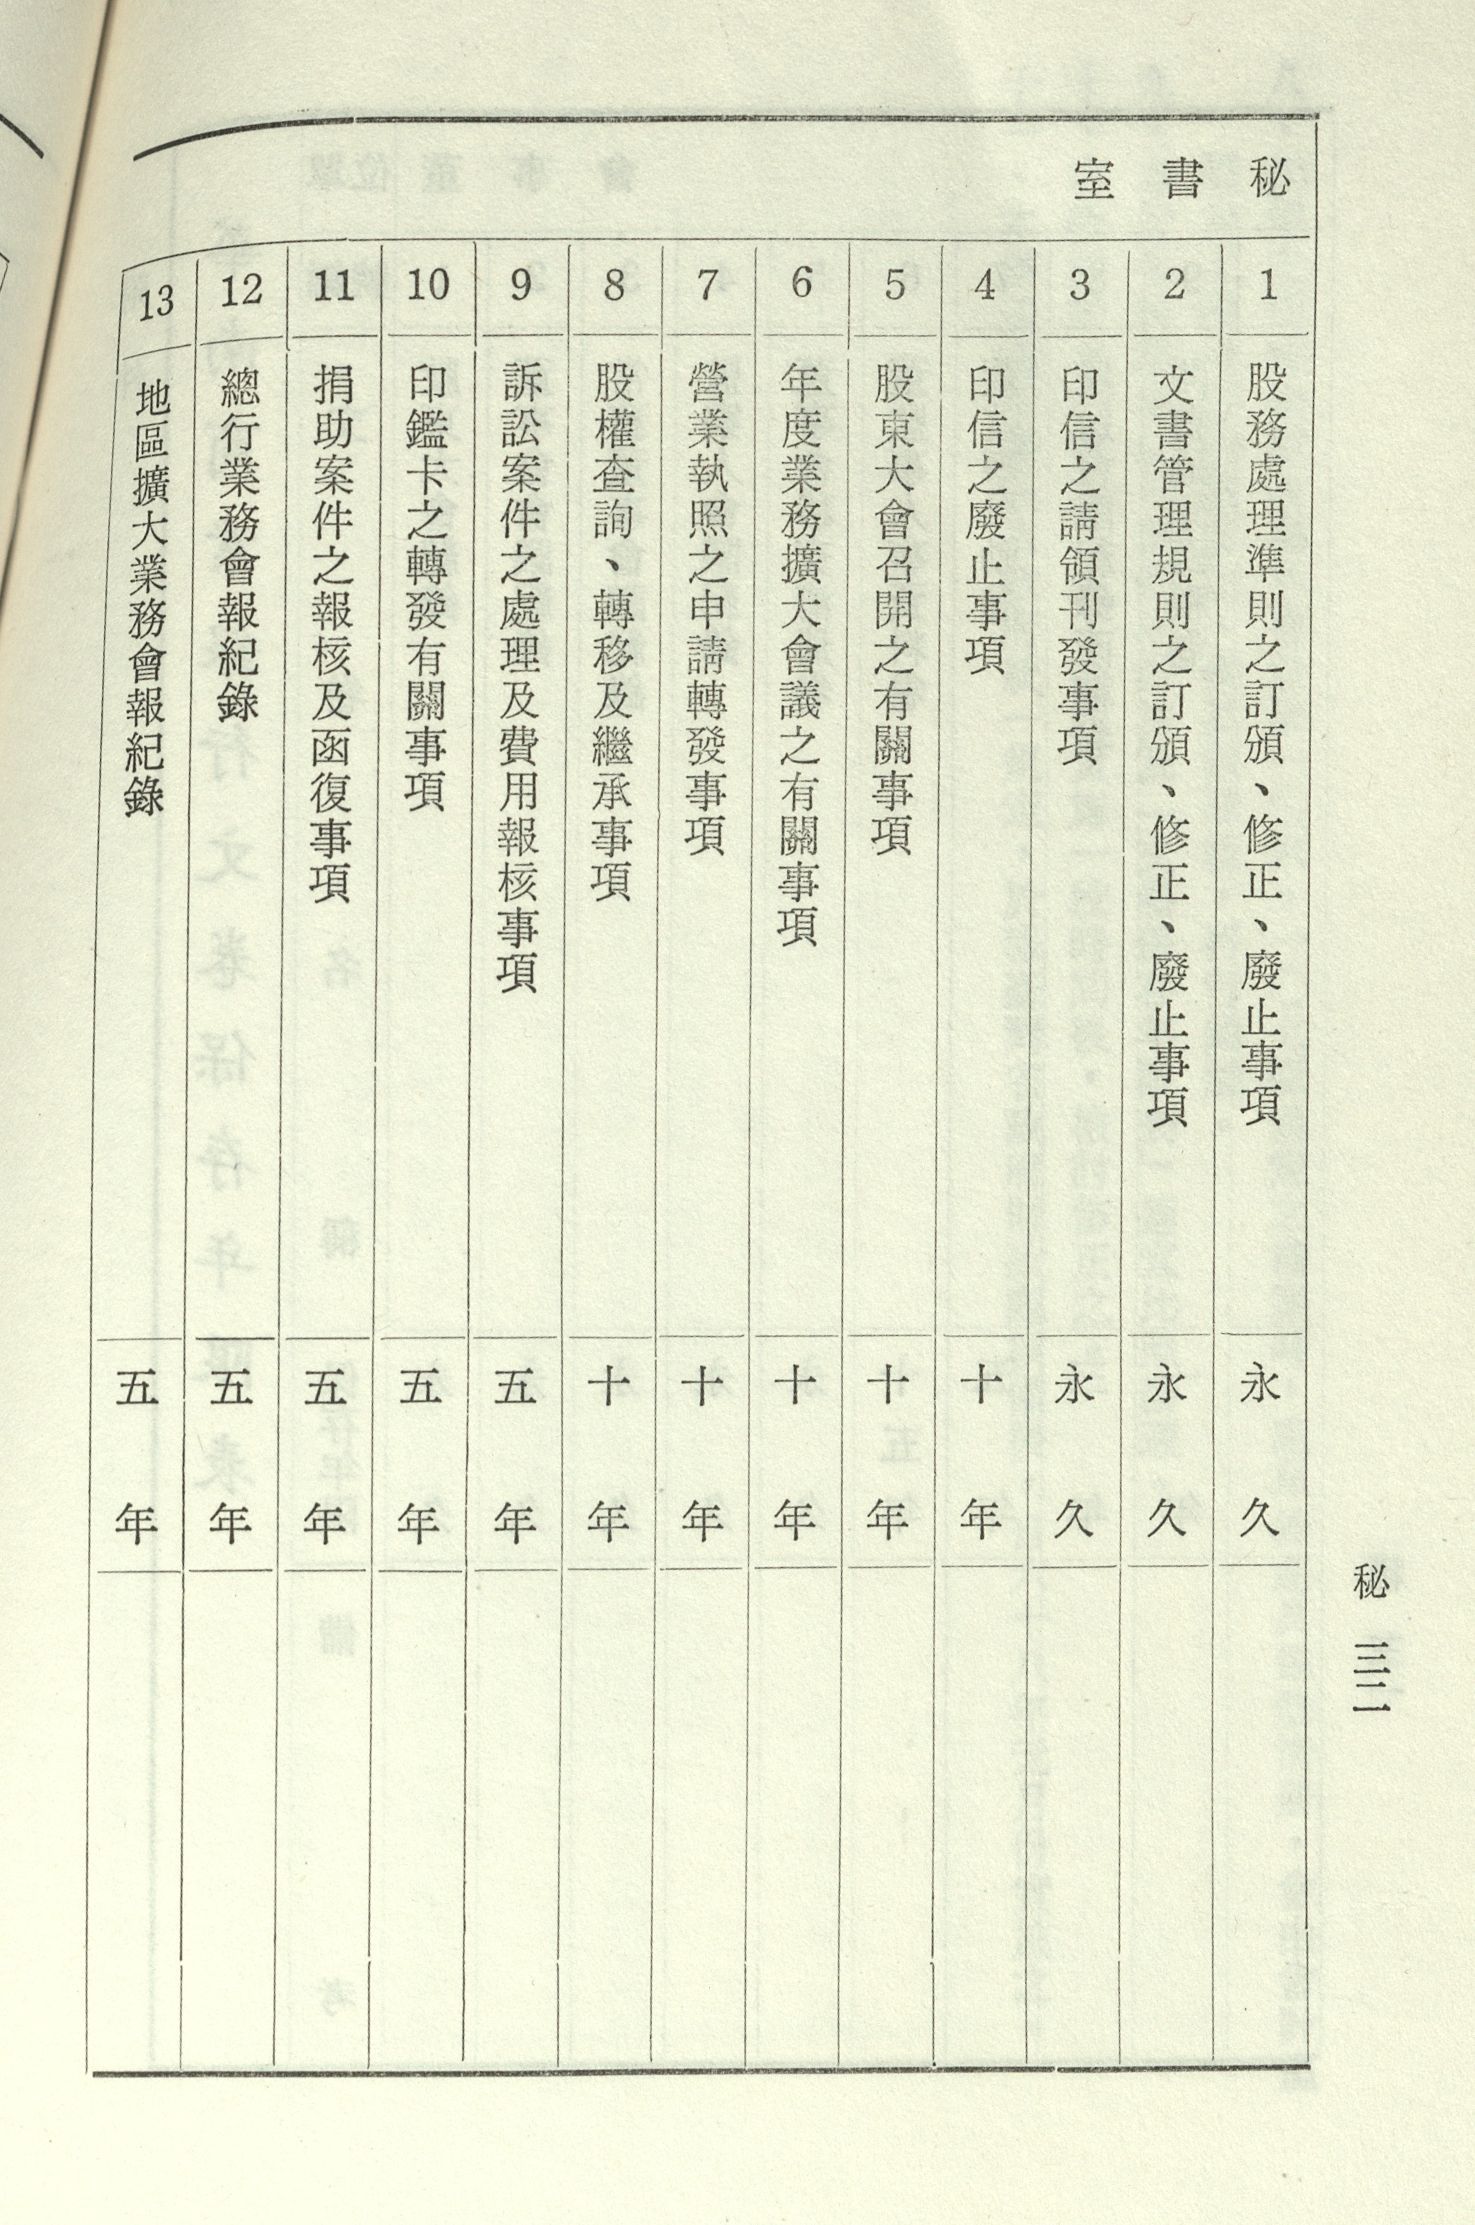 秘書室
1 股務處理準則之訂頒、修正、廢止事項 永久
2 文書管理規則之訂頒、修正、廢止事項 永久
3 印信之請領刊發事項 永久
4 印信之廢止事項 十年
5 股東大會召開之有關事項 十年
6 年度業務擴大會議之有關事項 十年
7 營業執照之申請轉發事項 十年
8 股權查詢、轉移及繼承事項 十年
9 訴訟案件之處理及費用報核事項 五年
10 印鑑卡之轉發有關事項 五年
11 捐助案件之報核及函復事項 五年
12 總行業務會報紀錄 五年
13 地區擴大業務會報紀錄 五年
秘 三二